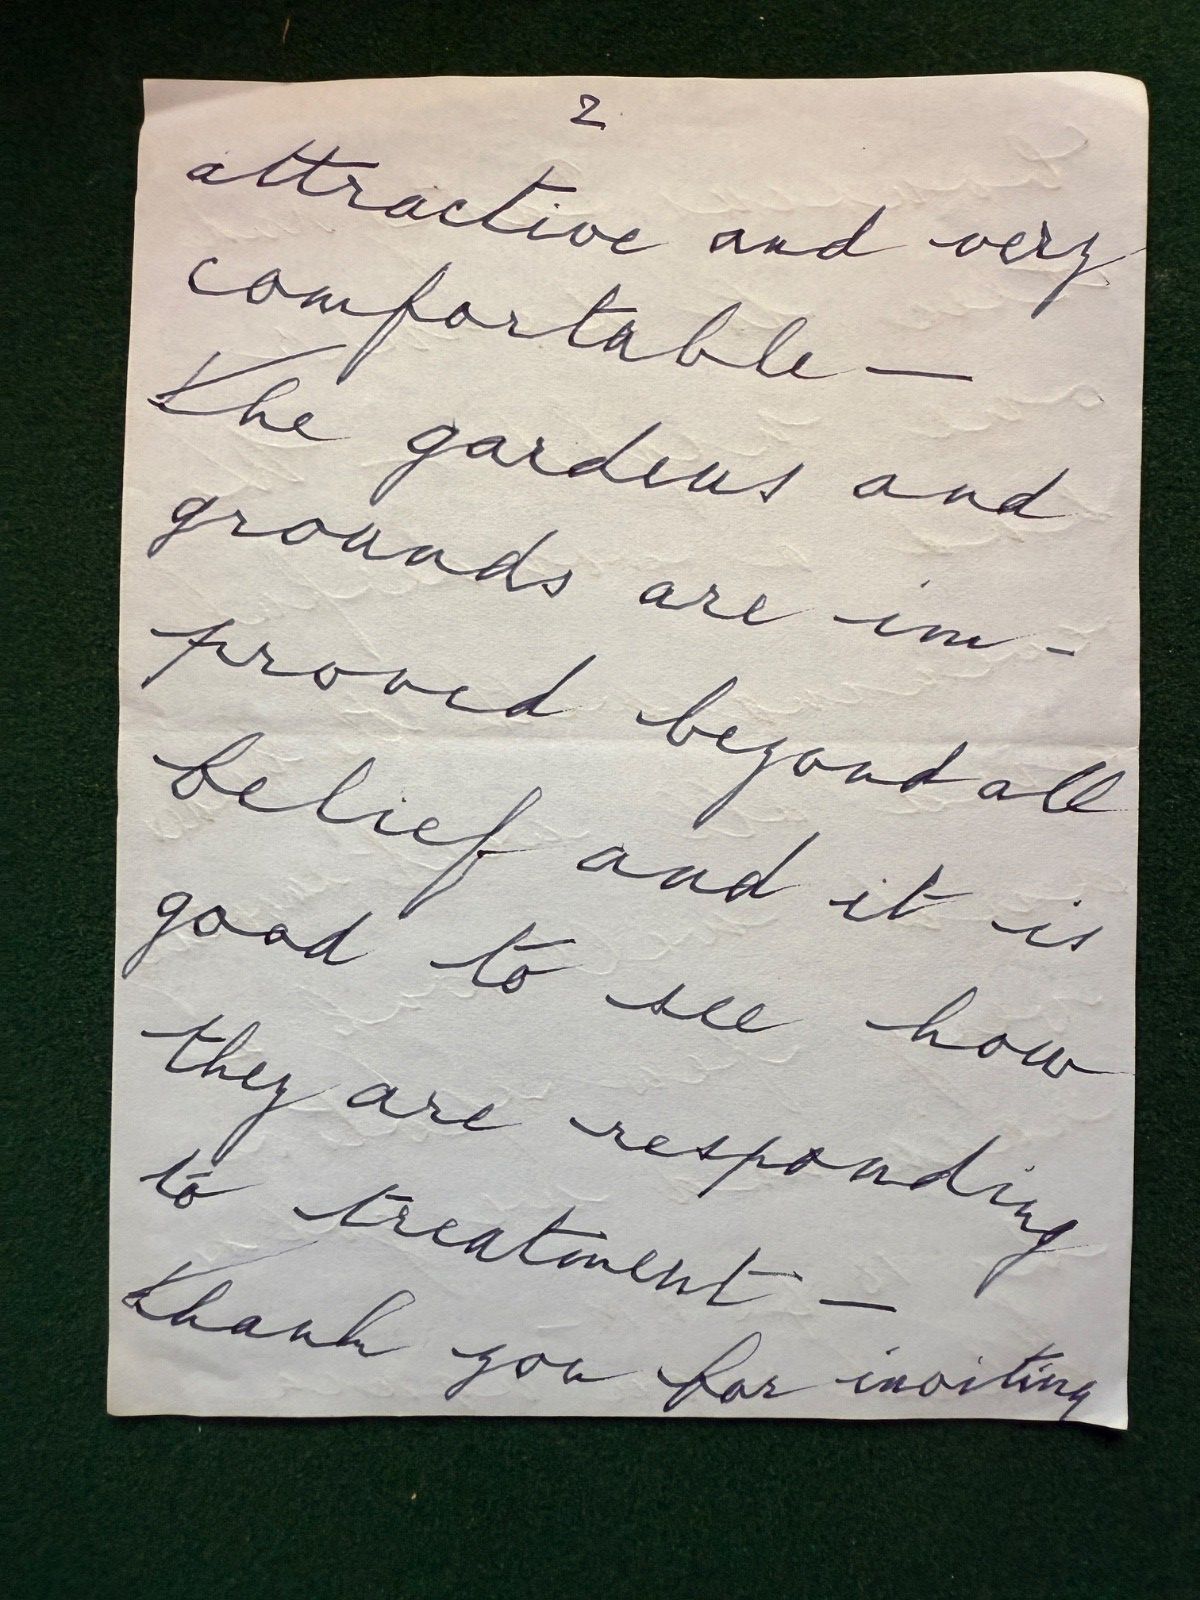 2
attractive and very
comfortable —
The gardens and
grounds are im-
proved beyond all
belief and it is
good to see how
they are responding
to treatment —
Thank you for inviting